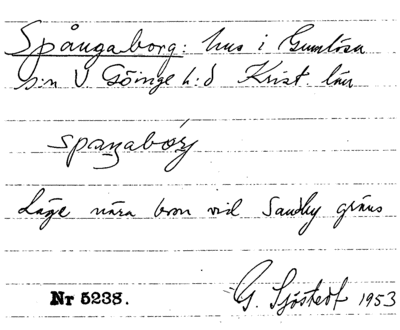 Spångaborg: hus i Gumlösa
s:n V Göinge h:d Krist län
spaŋabårj
Läge nära bron vid Sandby gräns
Nr 5238. G. Sjöstedt 1953